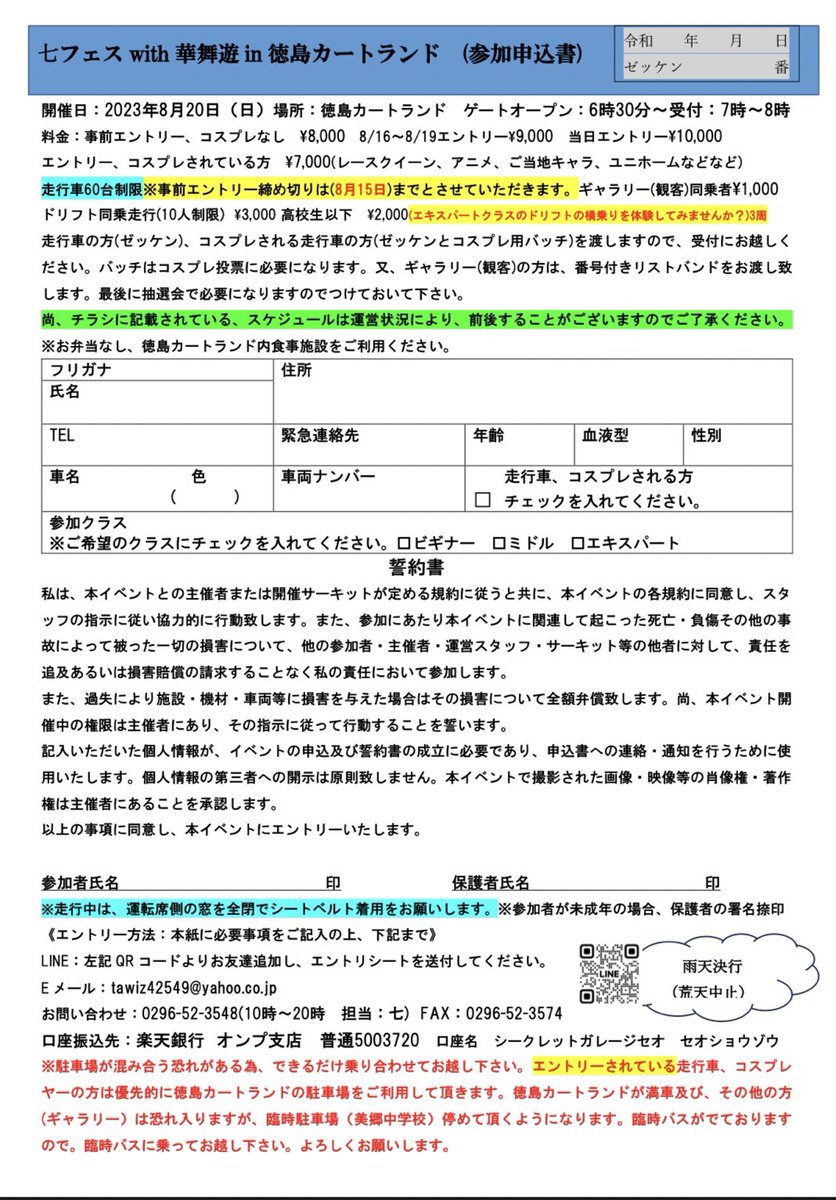 七フェス with 華舞遊 in 徳島カートランド (参加申込書)
令和 年 月 日
ゼッケン 番
開催日：2023年8月20日（日）場所：徳島カートランド ゲートオープン：6時30分～受付：7時～8時
料金：事前エントリー、コスプレなし ¥8,000 8/16～8/19エントリー¥9,000 当日エントリー¥10,000
エントリー、コスプレされている方 ¥7,000(レースクイーン、アニメ、ご当地キャラ、ユニホームなどなど)
走行車60台制限※事前エントリー締め切りは(8月15日)までとさせていただきます。ギャラリー(観客)同乗者¥1,000
ドリフト同乗走行(10人制限) ¥3,000 高校生以下 ¥2,000(エキスパートクラスのドリフトの横乗りを体験してみませんか？)3周
走行車の方(ゼッケン)、コスプレされる走行車の方(ゼッケンとコスプレ用バッチ)を渡しますので、受付にお越しく
ださい。バッチはコスプレ投票に必要になります。又、ギャラリー(観客)の方は、番号付きリストバンドをお渡し致
します。最後に抽選会で必要になりますのでつけておいて下さい。
尚、チラシに記載されている、スケジュールは運営状況により、前後することがございますのでご了承ください。
※お弁当なし、徳島カートランド内食事施設をご利用ください。
フリガナ 住所
氏名
TEL 緊急連絡先 年齢 血液型 性別
車名 色 車両ナンバー 走行車、コスプレされる方
( ) □ チェックを入れてください。
参加クラス
※ご希望のクラスにチェックを入れてください。□ビギナー □ミドル □エキスパート
誓約書
私は、本イベントとの主催者または開催サーキットが定める規約に従うと共に、本イベントの各規約に同意し、スタ
ッフの指示に従い協力的に行動致します。また、参加にあたり本イベントに関連して起こった死亡・負傷その他の事
故によって被った一切の損害について、他の参加者・主催者・運営スタッフ・サーキット等の他者に対して、責任を
追及あるいは損害賠償の請求することなく私の責任において参加します。
また、過失により施設・機材・車両等に損害を与えた場合はその損害について全額弁償致します。尚、本イベント開
催中の権限は主催者にあり、その指示に従って行動することを誓います。
記入いただいた個人情報が、イベントの申込及び誓約書の成立に必要であり、申込書への連絡・通知を行うために使
用いたします。個人情報の第三者への開示は原則致しません。本イベントで撮影された画像・映像等の肖像権・著作
権は主催者にあることを承認します。
以上の事項に同意し、本イベントにエントリーいたします。
参加者氏名 印 保護者氏名 印
※走行中は、運転席側の窓を全閉でシートベルト着用をお願いします。※参加者が未成年の場合、保護者の署名捺印
《エントリー方法：本紙に必要事項をご記入の上、下記まで》
LINE：左記QRコードよりお友達追加し、エントリシートを送付してください。
Eメール：tawiz42549@yahoo.co.jp
お問い合わせ：0296-52-3548(10時～20時 担当：七) FAX：0296-52-3574
LINE
雨天決行
（荒天中止）
口座振込先：楽天銀行 オンプ支店 普通5003720 口座名 シークレットガレージセオ セオショウゾウ
※駐車場が混み合う恐れがある為、できるだけ乗り合わせてお越し下さい。エントリーされている走行車、コスプレ
ヤーの方は優先的に徳島カートランドの駐車場をご利用して頂きます。徳島カートランドが満車及び、その他の方
(ギャラリー）は恐れ入りますが、臨時駐車場（美郷中学校）停めて頂くようになります。臨時バスがでております
ので。臨時バスに乗ってお越し下さい。よろしくお願いします。